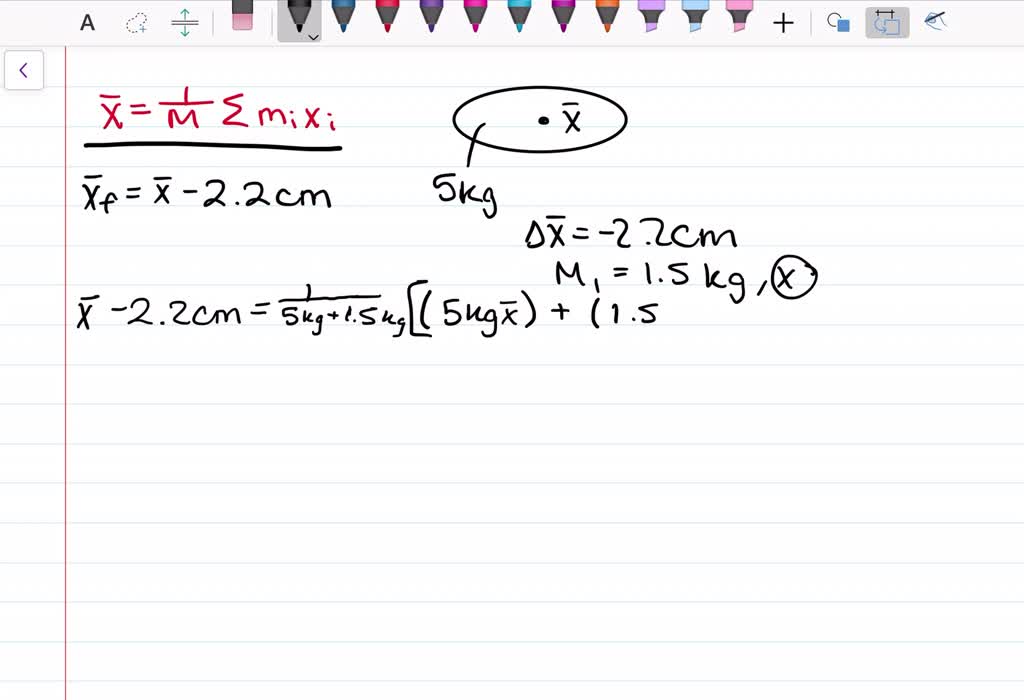 A
x̄ = 1/M Σ mᵢxᵢ
• x̄
x̄f = x̄ - 2.2cm
5kg
Δx̄ = -2.2cm
M₁ = 1.5 kg, x
x̄ - 2.2cm = 1/5kg+1.5kg [(5kgx̄) + (1.5